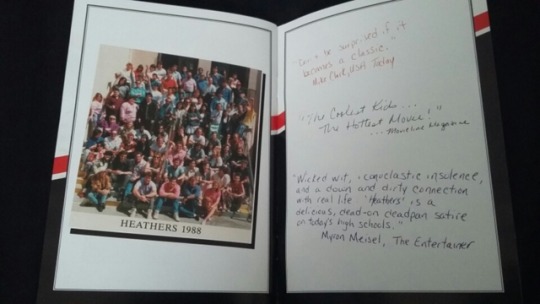 HEATHERS 1988
be surprised if it
becomes a classic."
Mike Clark, USA Today
"The Coolest Kids...
The Hottest Movie!"
... Movieline Magazine
"Wicked wit, iconoclastic insolence,
and a down and dirty connection
with real life. 'Heathers' is a
delicious, dead-on deadpan satire
on today's high schools."
Myron Meisel, The Entertainer